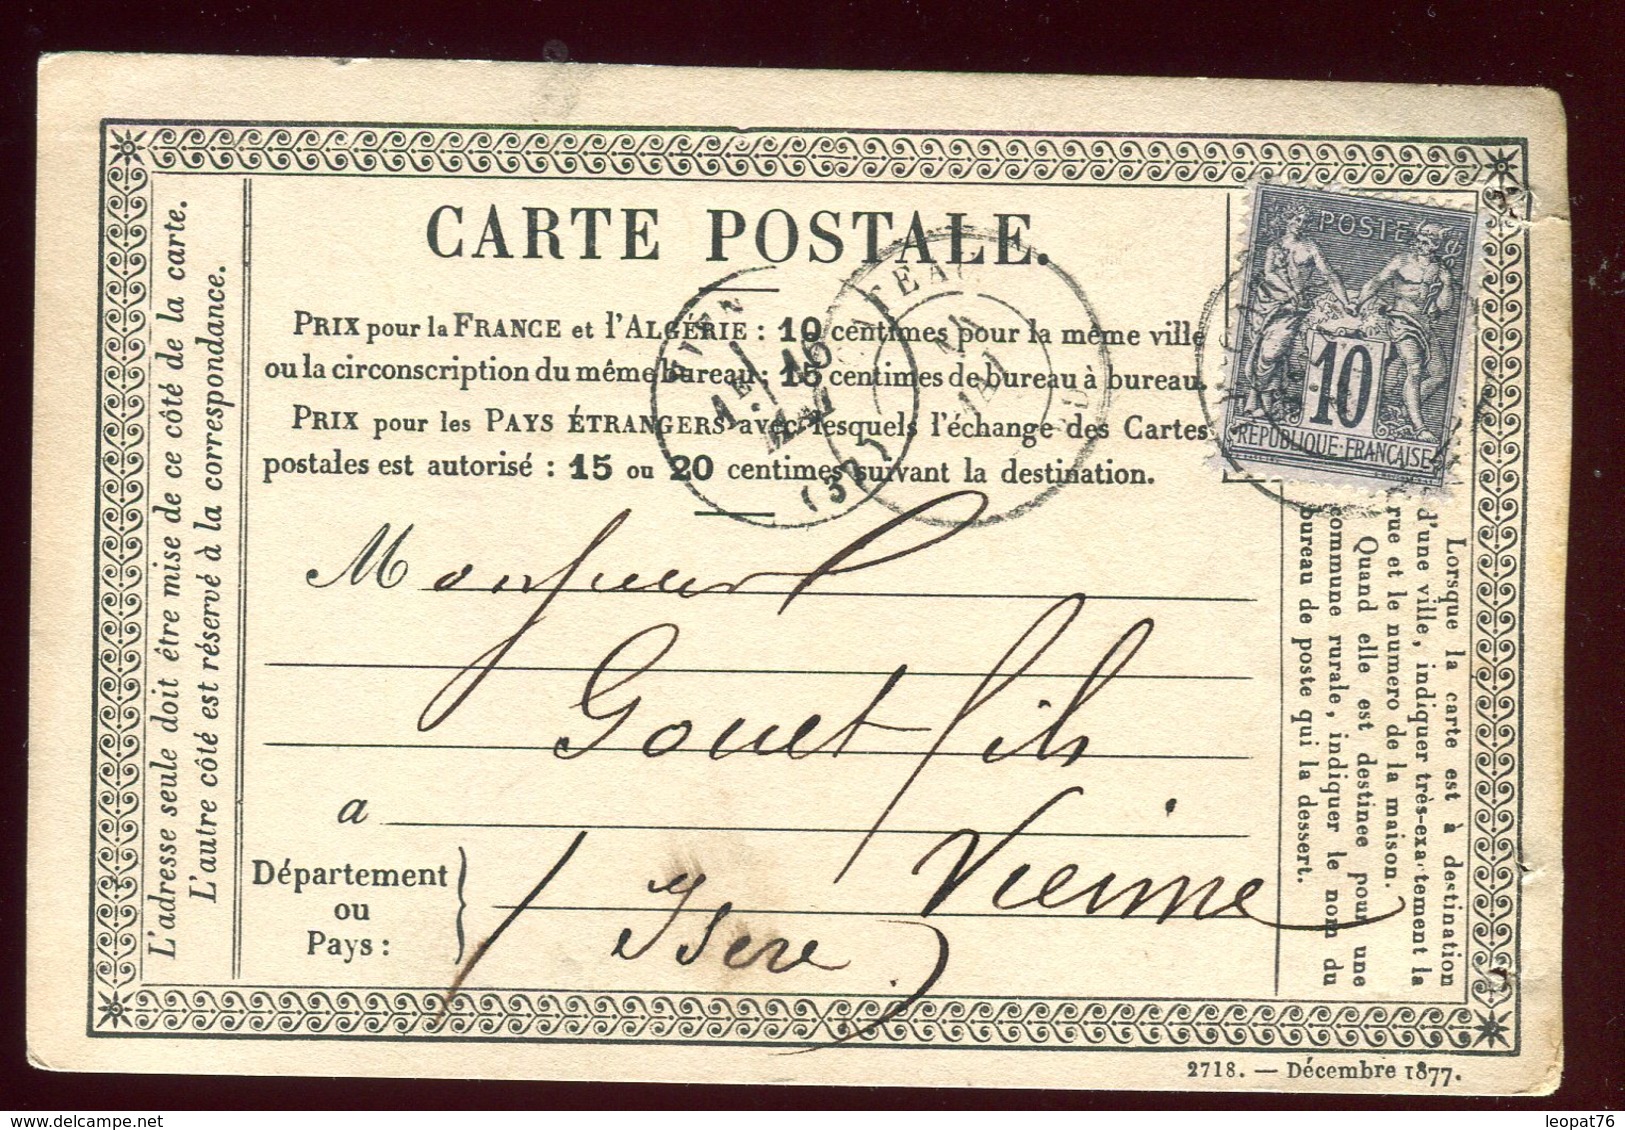 CARTE POSTALE.
PRIX pour la FRANCE et l'ALGÉRIE : 10 centimes pour la même ville
ou la circonscription du même bureau ; 15 centimes de bureau à bureau.
PRIX pour les PAYS ÉTRANGERS avec lesquels l'échange des Cartes
postales est autorisé : 15 ou 20 centimes suivant la destination.
L'adresse seule doit être mise de ce côté de la carte.
L'autre côté est réservé à la correspondance.
POSTE
10
REPUBLIQUE FRANÇAISE
(37)
Monsieur
Gouet fils
a
Vienne
Département
ou
Pays :
Isere
Lorsque la carte est à destination
d'une ville, indiquer très-exactement la
rue et le numero de la maison.
Quand elle est destinee pour une
commune rurale, indiquer le nom du
bureau de poste qui la dessert.
2718. — Décembre 1877.
leopat76